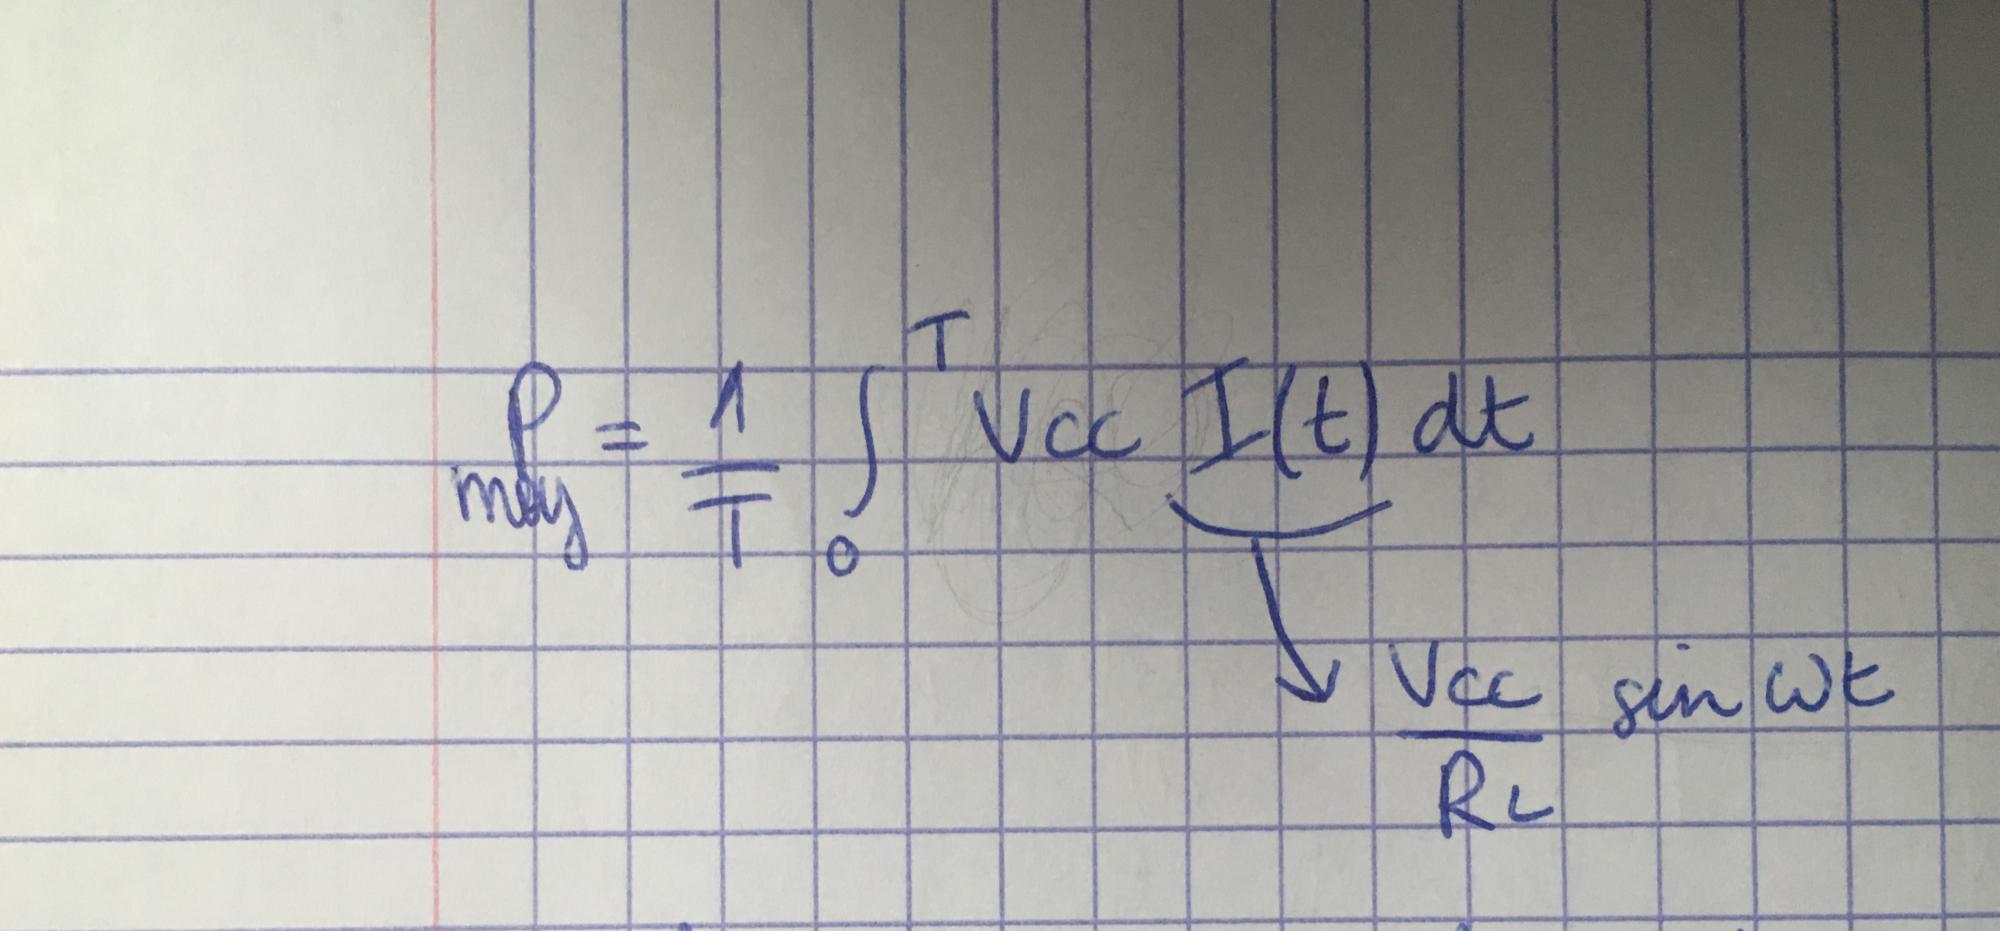 P moy = 1/T ∫₀ᵀ Vcc I(t) dt
Vcc/RL sin ωt